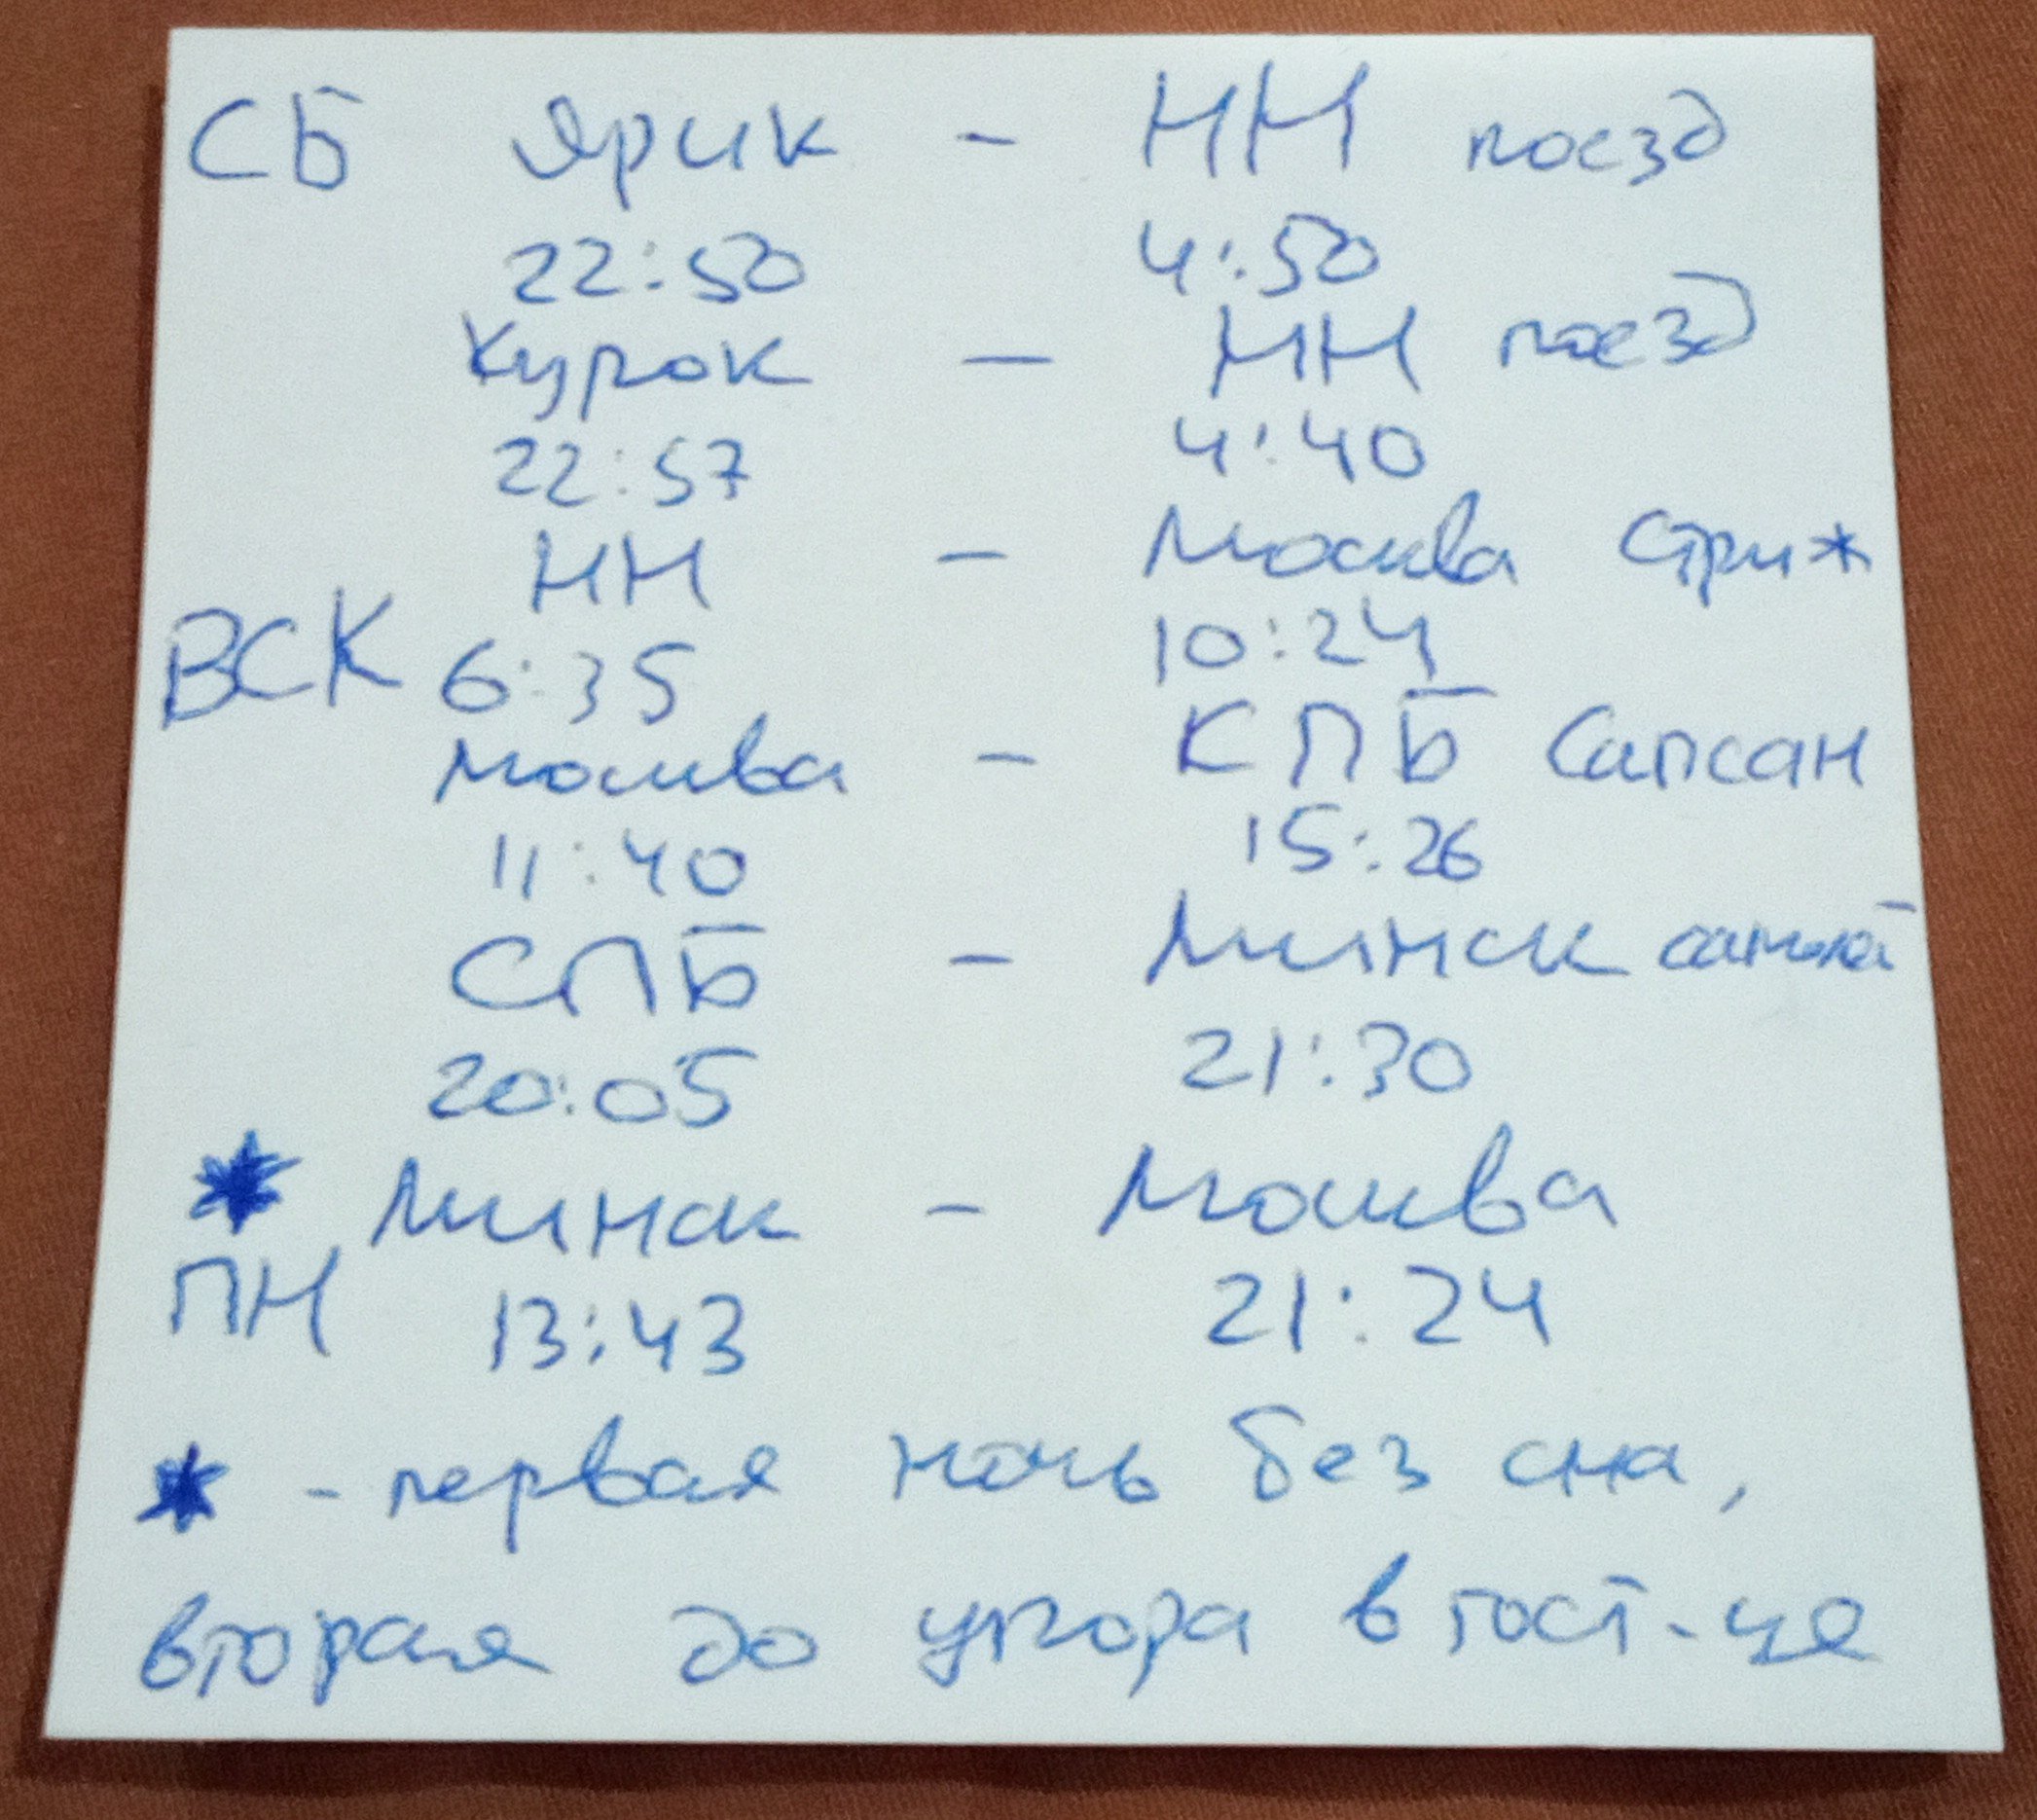 СБ Ярик - НН поезд
22:50 4:50
Курок - НН поезд
22:57 4:40
НН - Москва Стриж
ВСК 6:35 10:24
Москва - КПБ Сапсан
11:40 15:26
СПБ - Минск самолёт
20:05 21:30
* Минск - Москва
ПН 13:43 21:24
* - первая ночь без сна,
вторая до упора в гост-це